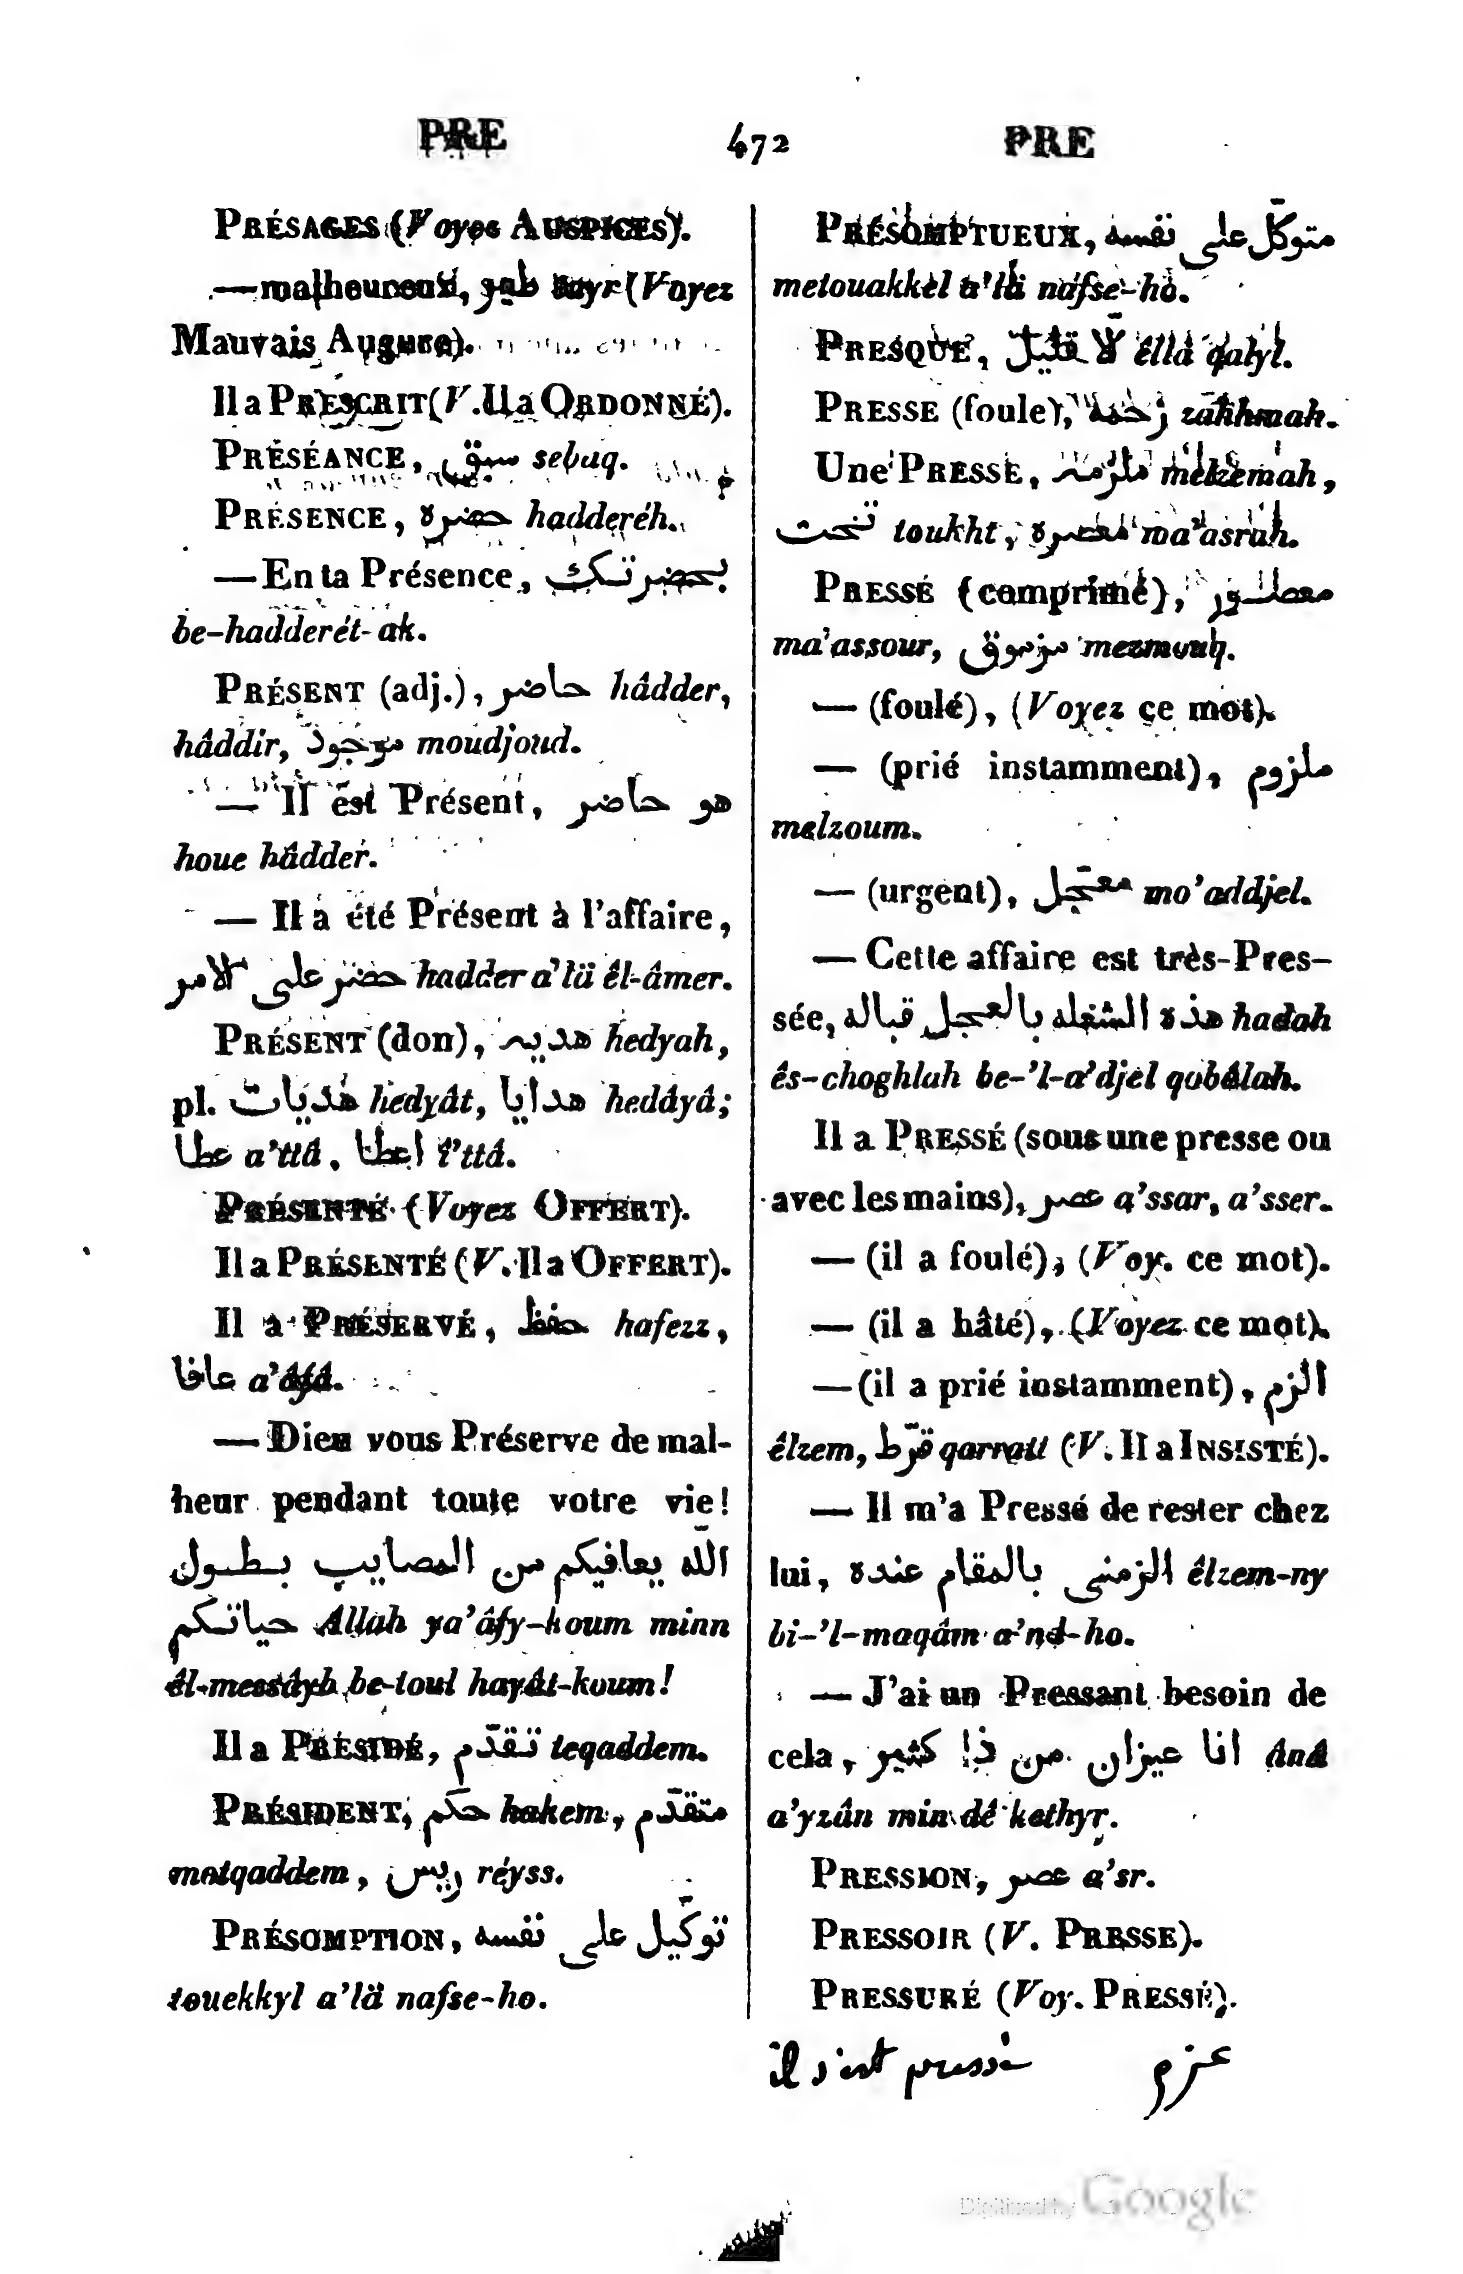 PRE 472 PRE
PRÉSAGES (Voyes AUSPICES).
— malheureux, طير tayr (Voyez
Mauvais Augure).
Il a PRESCRIT (V. Il a ORDONNÉ).
PRÉSÉANCE, سبق sebuq.
PRÉSENCE, حضرة hadderéh.
— En ta Présence, بحضرتك
be-hadderét-ak.
PRÉSENT (adj.), حاضر hâdder,
hâddir, موجود moudjoud.
— Il est Présent, هو حاضر
houe hâdder.
— Il a été Présent à l'affaire,
حضر على الامر hadder a'lä êl-âmer.
PRÉSENT (don), هديه hedyah,
pl. هديات hedyât, هدايا hedâyâ;
عطا a'ttâ, اعطا î'ttâ.
PRÉSENTÉ (Voyez OFFERT).
Il a PRÉSENTÉ (V. Il a OFFERT).
Il a PRÉSERVÉ, حفظ hafezz,
عافا a'âfâ.
— Dieu vous Préserve de mal-
heur pendant toute votre vie!
الله يعافيكم من المصايب بطول
حياتكم Allah ya'âfy-koum minn
êl-messâyb be-toul hayât-koum!
Il a PRÉSIDÉ, تقدّم teqaddem.
PRÉSIDENT, حكم hakem, متقدّم
motqaddem, رييس réyss.
PRÉSOMPTION, توكّيل على نفسه
touekkyl a'lä nafse-ho.
PRÉSOMPTUEUX, متوكّل على نفسه
metouakkel a'lä nafse-ho.
PRESQUE, الّا قليل êllâ qalyl.
PRESSE (foule), زخمة zakhmah.
Une PRESSE, ملزمة melzemah,
تخت toukht, معصرة ma'asrah.
PRESSÉ (comprimé), معصور
ma'assour, مزموق mezmouq.
— (foulé), (Voyez ce mot).
— (prié instamment), ملزوم
melzoum.
— (urgent), معجّل mo'addjel.
— Cette affaire est très-Pres-
sée, هذه الشغله بالعجل قباله hadah
ês-choghlah be-'l-a'djel qobâlah.
Il a PRESSÉ (sous une presse ou
avec les mains), عصر a'ssar, a'sser.
— (il a foulé), (Voy. ce mot).
— (il a hâté), (Voyez ce mot).
— (il a prié instamment), الزم
êlzem, قرّط qarratt (V. Il a INSISTÉ).
— Il m'a Pressé de rester chez
lui, الزمنى بالمقام عنده êlzem-ny
bi-'l-maqâm a'nd-ho.
— J'ai un Pressant besoin de
cela, انا عيزان من ذا كثير ânâ
a'yzân min dê kethyr.
PRESSION, عصر a'sr.
PRESSOIR (V. PRESSE).
PRESSURÉ (Voy. PRESSÉ).
il s'est pressé عزم
Digitized by Google